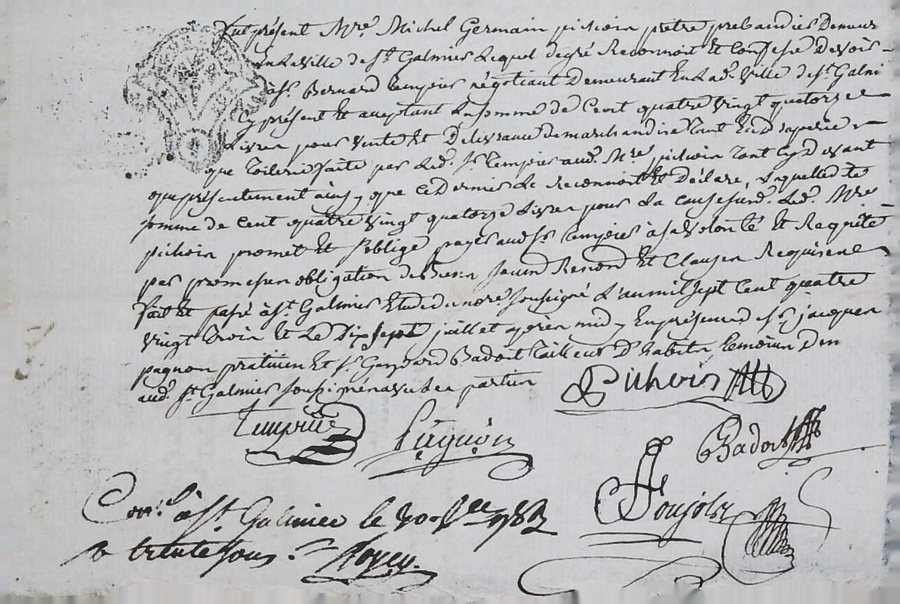 fut présent Mre Michel Germain pichoin pretre prebandier Demeur
En la ville de St. Galmier Lequel de gré Reconnoit Et Confesse Devoir
à Sr. Bernard négotiant Demeurant En lad. Ville de St Galmi
Cy présent Et aceptant La somme de Cent quatre vingt quatorze
Livres pour vente Et Délivrance de marchandise tant En
que toilerie faite par led. Sr. aud. Mre pichoin tant Cydevant
que présentement ainsy que ce dernier Le Reconnoit Et Déclare, Laquelle de
somme de Cent quatre vingt quatorze Livres pour La Cause susd. Led. Mre
pichoin promet Et s'oblige payer aud. Sr. à sa volonté Et Requête
par promesse obligation de biens Et Clauses Requises
fait Et passé à St. Galmier Etude du nore Soussigné L'an mil sept Cent quatre
vingt trois Et Le Dix Sept juillet après midy En présence de Sr. jacques
pagnon praticien Et Sr. Gaspard Badoit tailleur D'habits temoins Dem
aud. St Galmier Soussignés avec Les parties
Pichoin
Pagnon
Badoit
Ponjolz
Con.lé à St. Galmier le 1783
R trente sous.